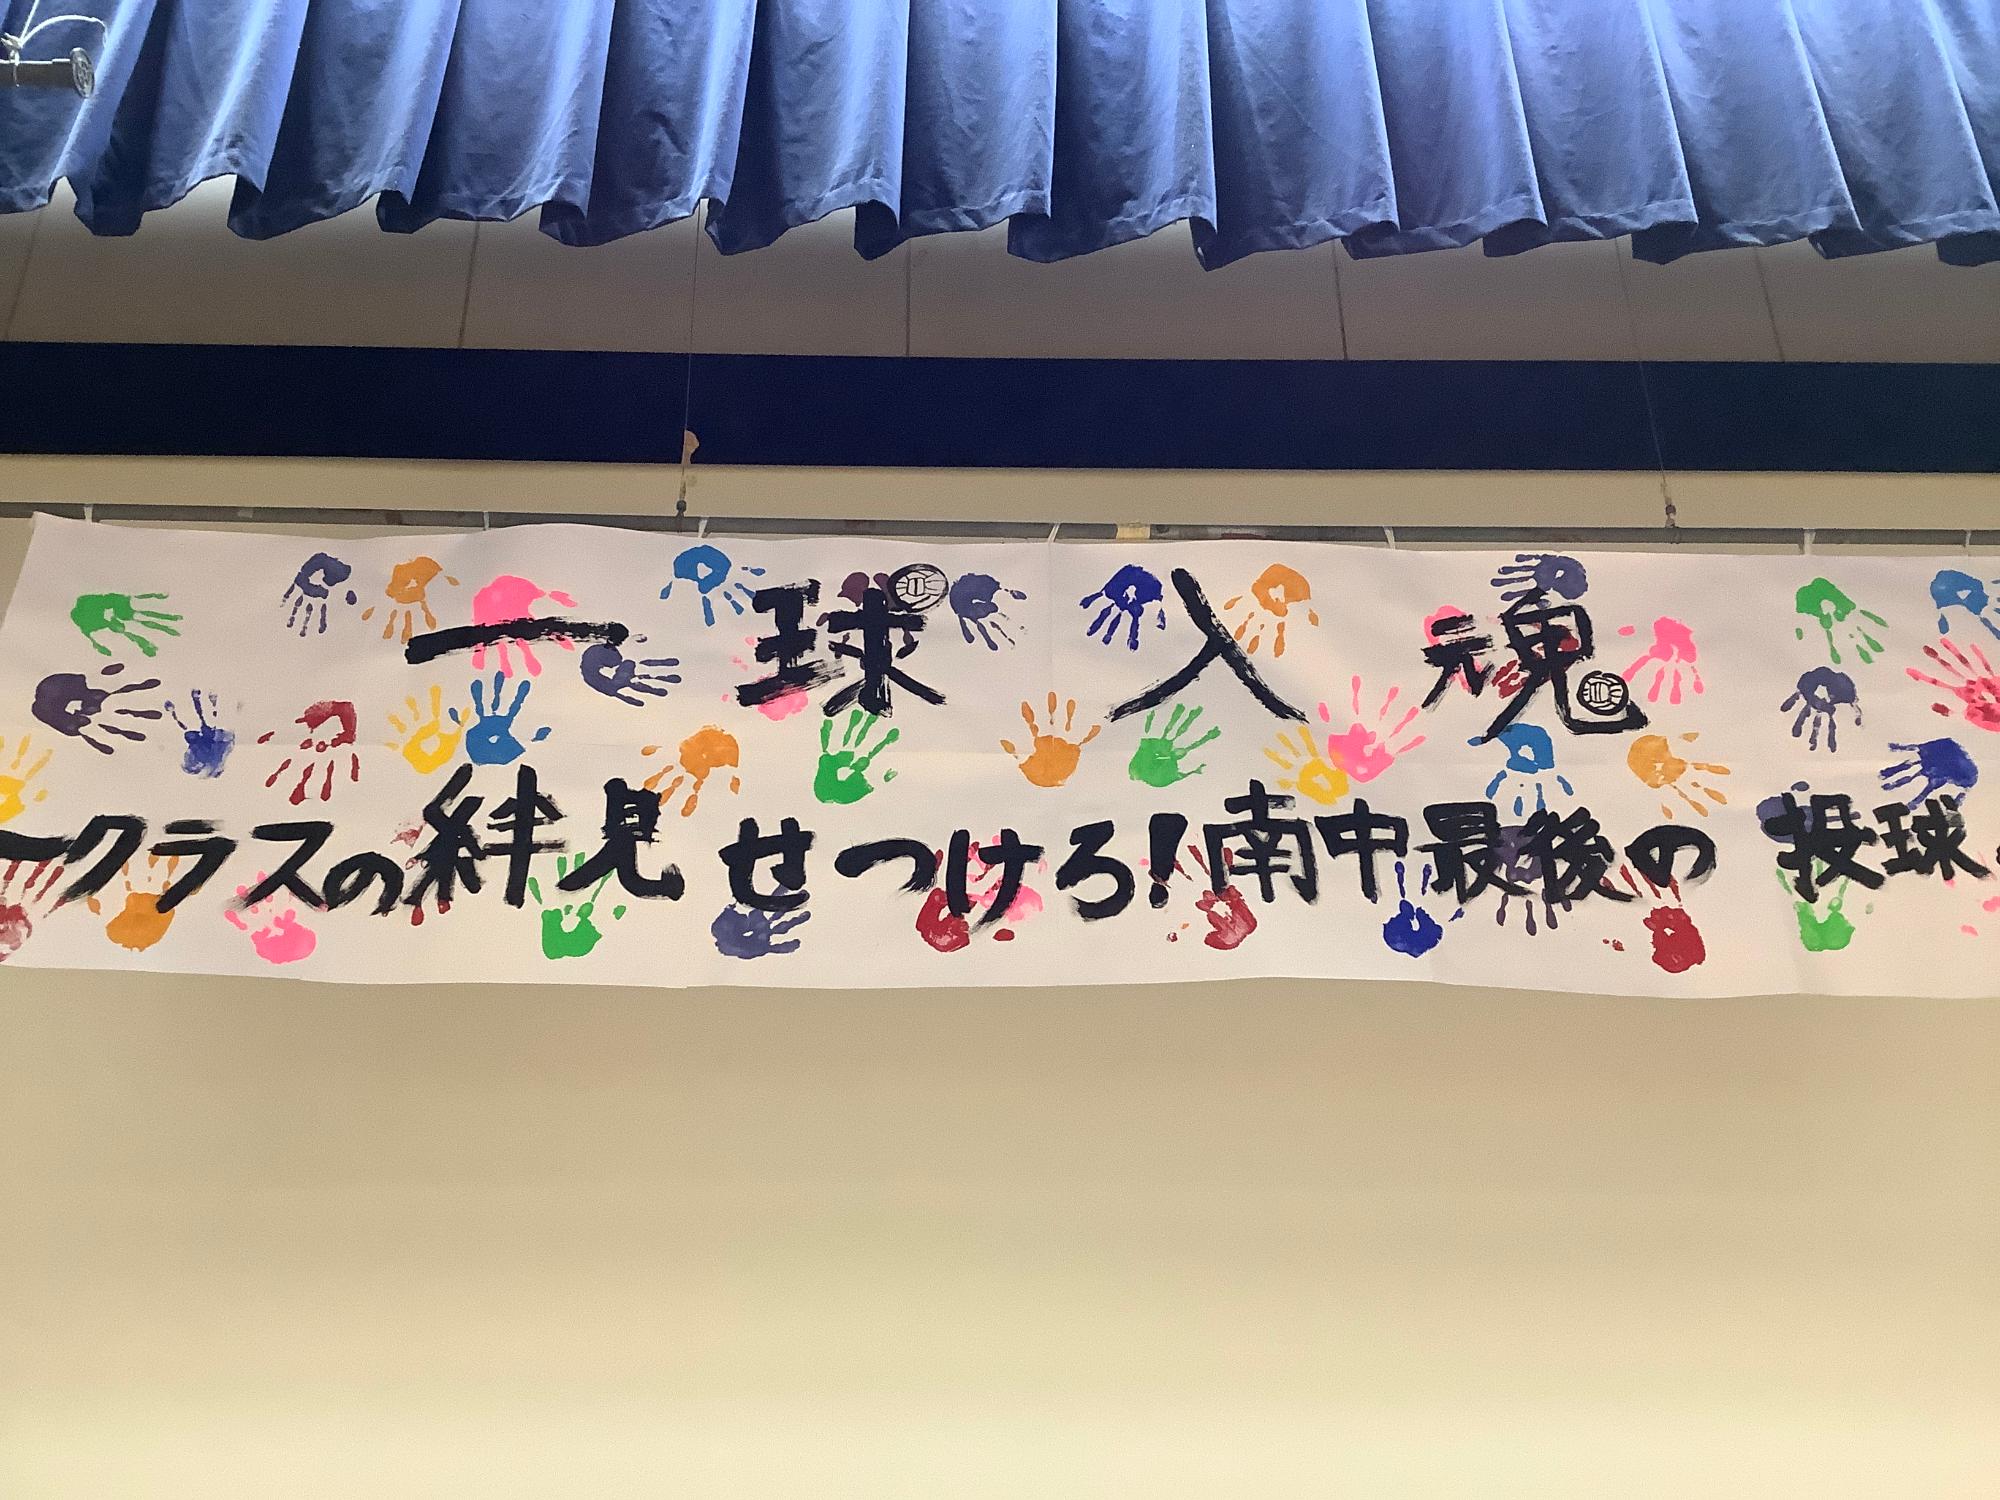 一球入魂
一クラスの絆見せつけろ!南中最後の投球